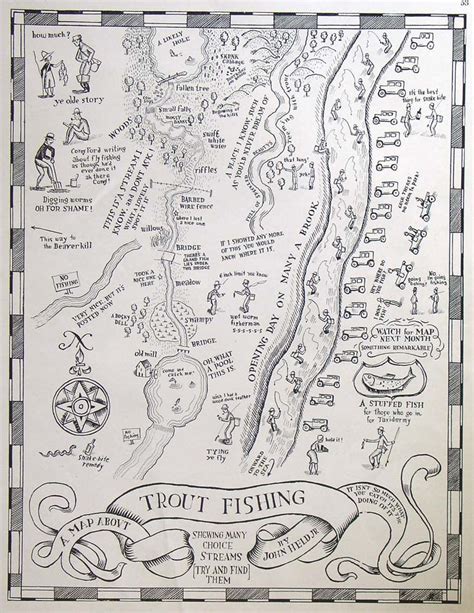 53
how much?
ye olde story
A LIKELY
HOLE
fallen tree
Small falls
swift
white
water
riffles
WOODS
Corey Ford writing
about fly fishing
as though he'd
ever done it
ah there
Corey!
Digging worms
OH FOR SHAME!
THIS IS A STREAM I
KNOW and DON'T YOU
This way to
the Beaverkill
BARBED
WIRE fence
where I lost
a nice one
willows
BRIDGE
THERE'S A
GRAND FISH
LIES UNDER
THIS BRIDGE
TOOK A
NICE ONE
HERE
meadow
NO
FISHING
VERY NICE BUT IT'S
POSTED NOW
A BOSKY
DELL
swampy
BRIDGE
old mill
come and
catch me!
OH WHAT
A POOL
THIS IS.
N
NO
FISHING
Snake bite
remedy
A PLACE I KNOW THAT
YOU'D NEVER DREAM OF
FULL OF
BEAUTYS
IF I SHOWED ANY MORE
OF THIS YOU WOULD
KNOW WHERE IT IS.
wet worm
fisherman
S-S-S-S-S-S
TYING
ye fly
OPENING DAY ON MANY A BROOK
ONWARD
TO THE
SEA
It's the best
thing for snake bite
hold it!
WATCH for MAP
NEXT MONTH
(SOMETHING REMARKABLE)
A STUFFED FISH
for those who go in
for Taxidermy
TROUT FISHING
A MAP ABOUT
SHOWING MANY
CHOICE
STREAMS
[TRY AND FIND
THEM]
BY
JOHN HELD JR
IT ISN'T SO MUCH WHAT
YOU CATCH IT'S THE
DOING OF IT